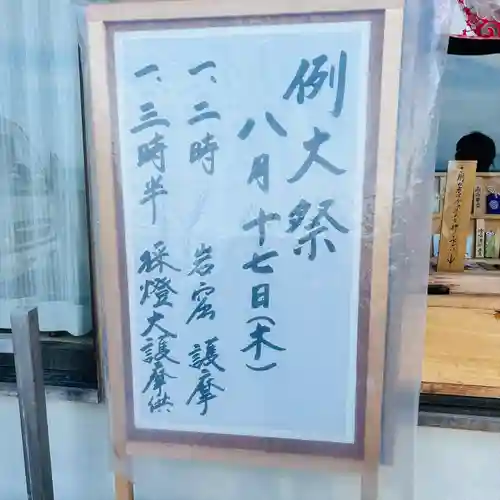 例大祭
八月十七日(木)
一、二時 岩窟護摩
一、三時半 採燈大護摩供